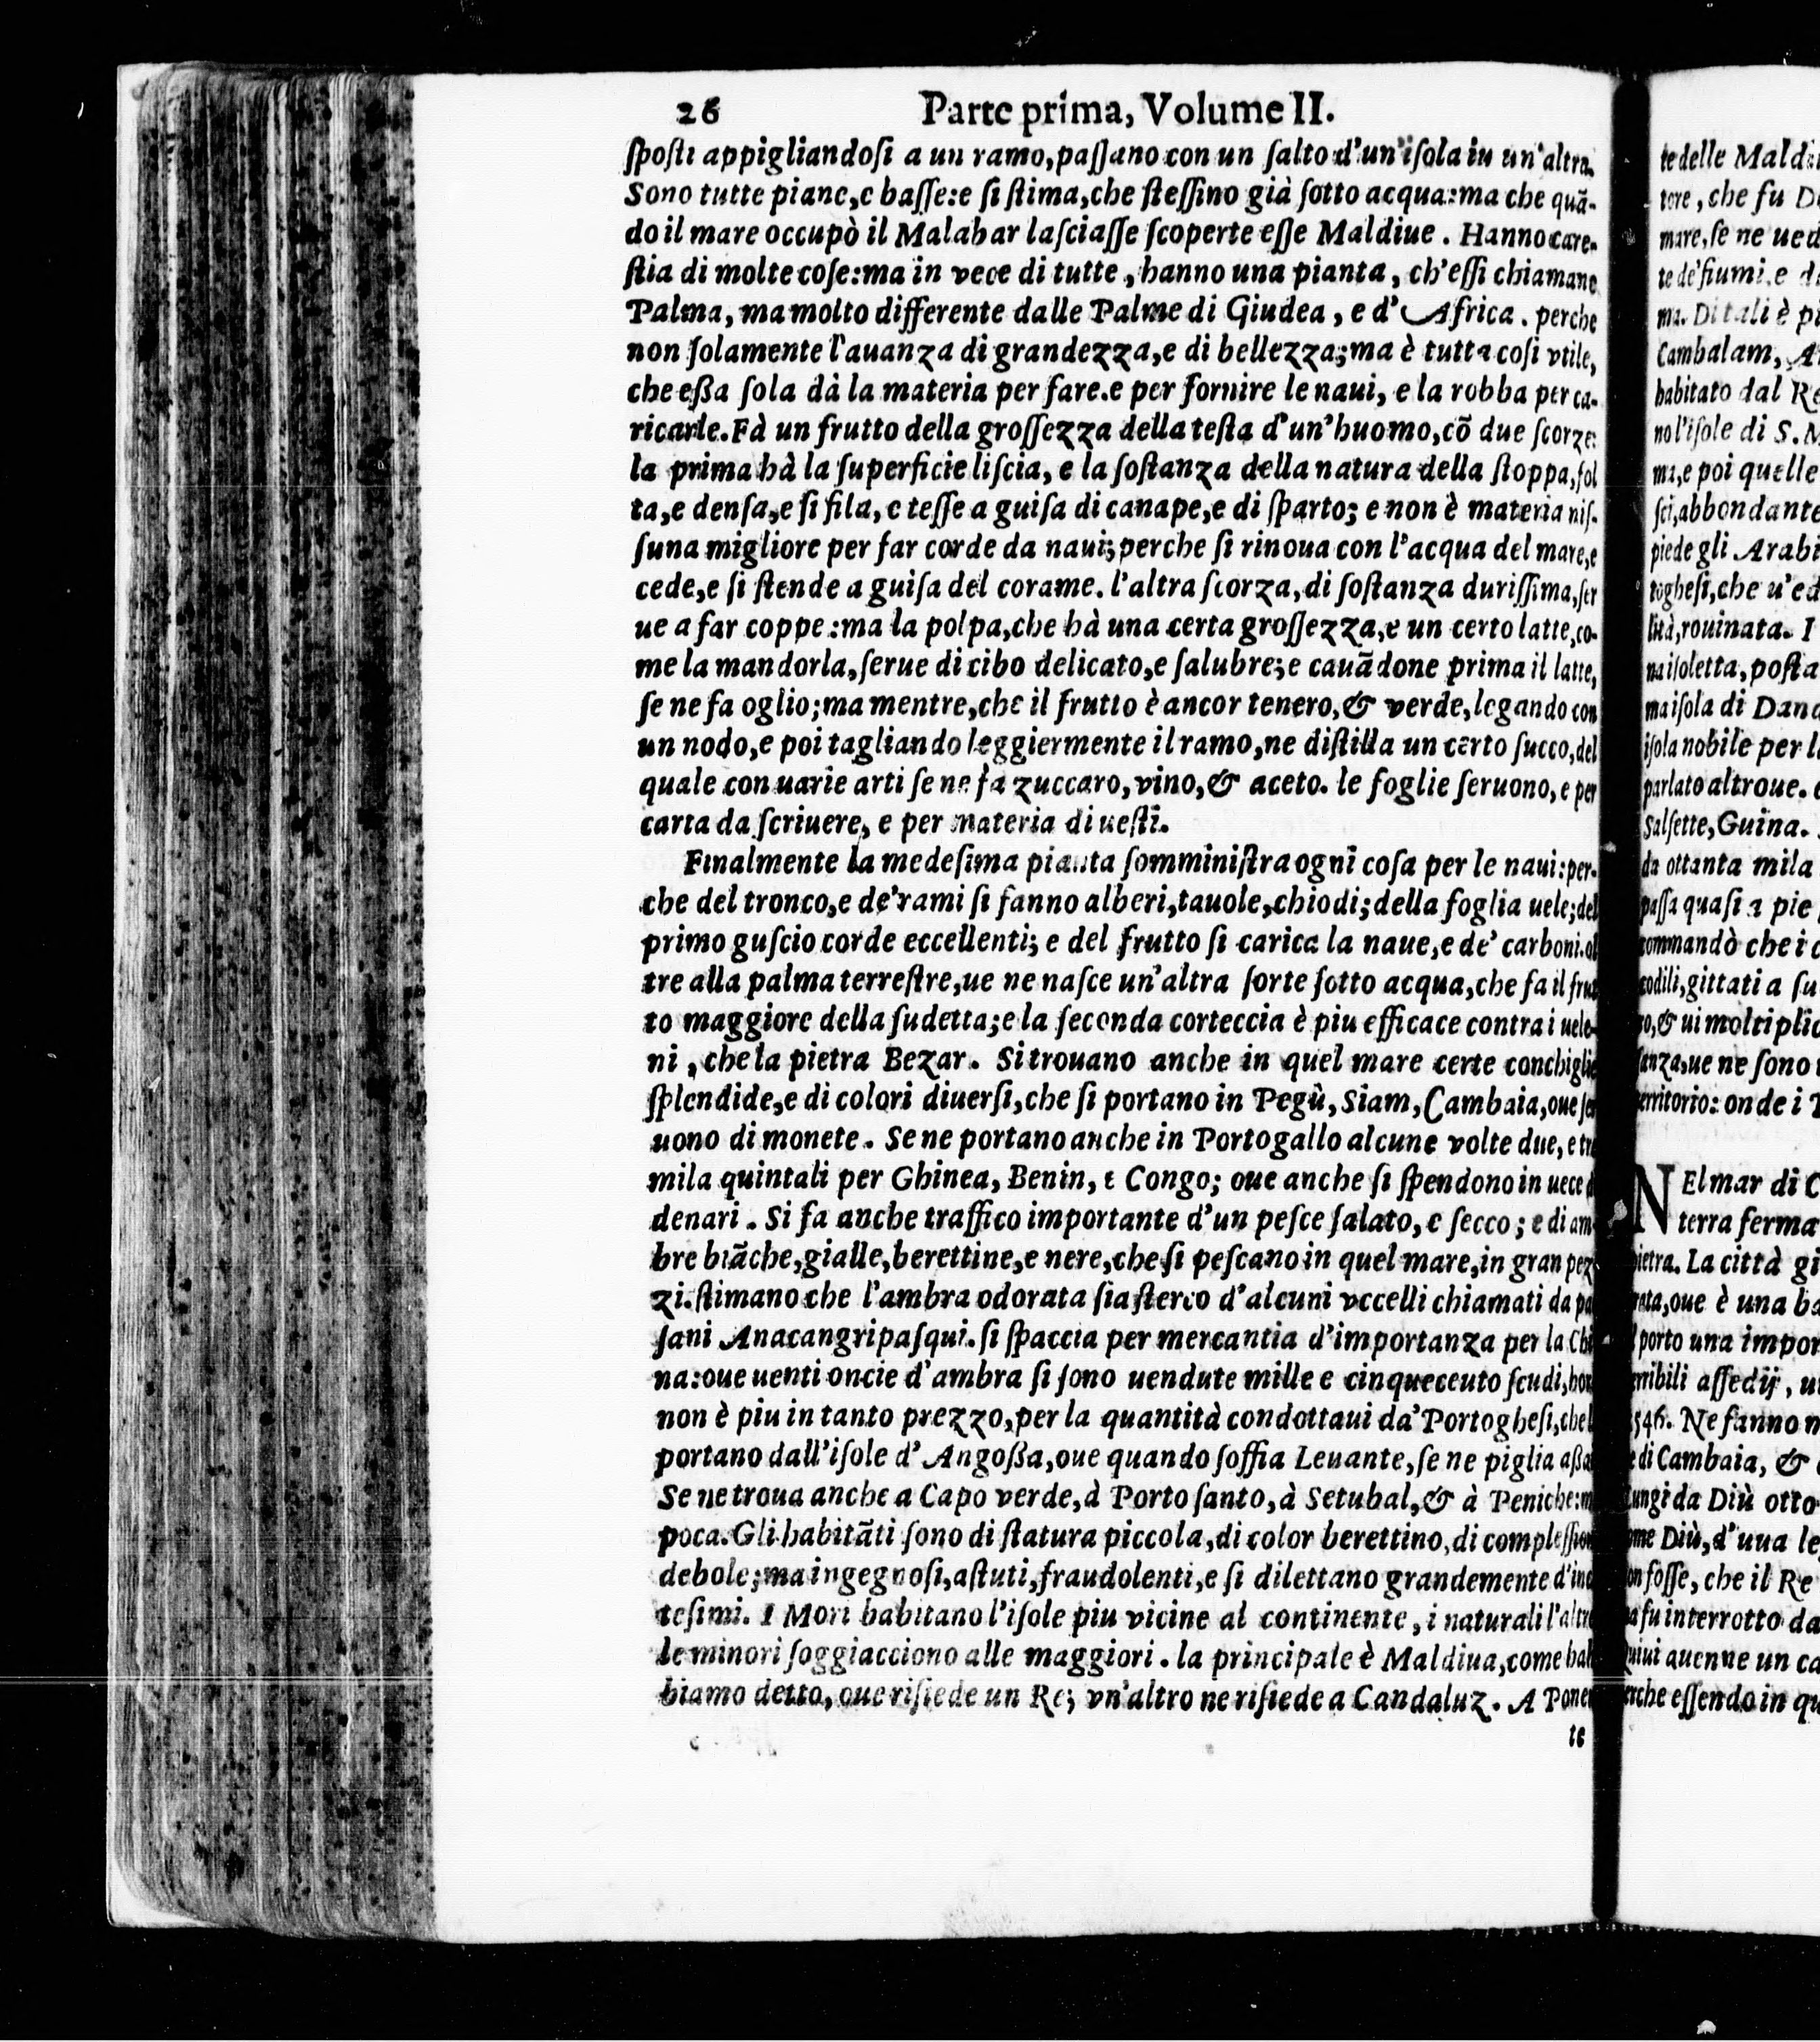 26 Parte prima, Volume II.
sposti appigliandosi a un ramo, passano con un salto d'un'isola in un'altra.
Sono tutte piane, e basse: e si stima, che stessino già sotto acqua: ma che quã-
do il mare occupò il Malabar lasciasse scoperte esse Maldiue. Hanno care-
stia di molte cose: ma in vece di tutte, hanno una pianta, ch'essi chiamano
Palma, ma molto differente dalle Palme di Giudea, e d'Africa. perche
non solamente l'auanza di grandezza, e di bellezza; ma è tutta cosi vtile,
che eßa sola dà la materia per fare. e per fornire le naui, e la robba per ca-
ricarle. Fà un frutto della grossezza della testa d'un'huomo, cõ due scorze:
la prima hà la superficie liscia, e la sostanza della natura della stoppa, fol
ta, e densa, e si fila, e tesse a guisa di canape, e di sparto; e non è materia nis-
suna migliore per far corde da naui; perche si rinoua con l'acqua del mare, e
cede, e si stende a guisa del corame. l'altra scorza, di sostanza durissima, ser
ue a far coppe: ma la polpa, che hà una certa grossezza, e un certo latte, co-
me la mandorla, serue di cibo delicato, e salubre; e cauãdone prima il latte,
se ne fa oglio; ma mentre, che il frutto è ancor tenero, & verde, legando con
un nodo, e poi tagliando leggiermente il ramo, ne distilla un certo succo, del
quale con uarie arti se ne fa zuccaro, vino, & aceto. le foglie seruono, e per
carta da scriuere, e per materia di uesti.
Finalmente la medesima pianta somministra ogni cosa per le naui: per-
che del tronco, e de'rami si fanno alberi, tauole, chiodi; della foglia uele; del
primo guscio corde eccellenti; e del frutto si carica la naue, e de' carboni. ol
tre alla palma terrestre, ue ne nasce un'altra sorte sotto acqua, che fa il frut
to maggiore della sudetta; e la seconda corteccia è piu efficace contra i uele-
ni, che la pietra Bezar. Si trouano anche in quel mare certe conchiglie
splendide, e di colori diuersi, che si portano in Pegù, Siam, Cambaia, oue ser
uono di monete. Se ne portano anche in Portogallo alcune volte due, e tre
mila quintali per Ghinea, Benin, e Congo; oue anche si spendono in uece
denari. Si fa anche traffico importante d'un pesce salato, e secco; e di am
bre biãche, gialle, berettine, e nere, che si pescano in quel mare, in gran pez
zi. stimano che l'ambra odorata sia sterco d'alcuni vccelli chiamati da pa
sani Anacangripasqui. si spaccia per mercantia d'importanza per la Chi
na: oue uenti oncie d'ambra si sono uendute mille e cinquecento scudi, hor
non è piu in tanto prezzo, per la quantità condottaui da'Portoghesi, che
portano dall'isole d'Angoßa, oue quando soffia Leuante, se ne piglia aßai
Se ne troua anche a Capo verde, à Porto santo, à Setubal, & à Peniche: m
poca. Gli habitãti sono di statura piccola, di color berettino, di complession
debole; ma ingegnosi, astuti, fraudolenti, e si dilettano grandemente d'inc
tesimi. I Mori habitano l'isole piu vicine al continente, i naturali l'altre
le minori soggiacciono alle maggiori. la principale è Maldiua, come hab
biamo detto, oue risiede un Re; vn'altro ne risiede a Candaluz. A Ponen
te
te delle Maldi
tore, che fu D
mare, se ne ued
te de'fiumi. e d
ma. Di tali è p
Cambalam, A
habitato dal Re
no l'isole di S. M
ma, e poi quelle
sci, abbondante
piede gli Arabi
toghesi, che u'ed
lità, rouinata. I
na isoletta, posta
ma isola di Dana
isola nobile per l
parlato altroue.
Salsette, Guina.
da ottanta mila
passa quasi a pie
commandò che i c
codili, gittati a su
so, & ui moltiplic
sanza, ue ne sono
territorio: onde i
NEl mar di C
terra ferma
pietra. La città gi
rata, oue è una ba
porto una impor
rribili assedij, u
546. Ne fanno m
e di Cambaia, &
Lungi da Diù otto
ome Diù, d'una le
on fosse, che il Re
a fu interrotto da
Quiui auenne un ca
erche essendo in qu